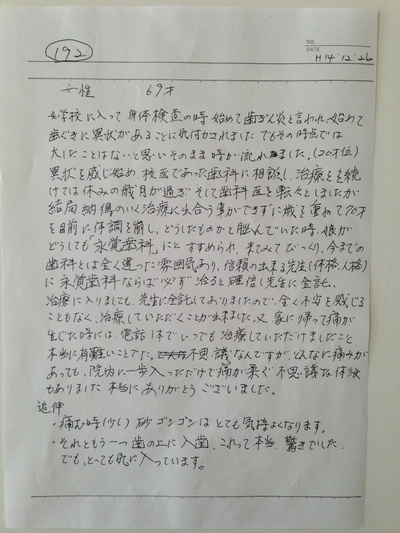 192
NO.
DATE
H14.12.26
女性 69才
女学校に入って身体検査の時始めて歯ぎん炎と言われ始めて
歯ぐきに異状があることに気付かされました でもその時点では
大したことはないと思いそのまま時が流れました。(20才位)
異状を感じ始め、校医であった歯科に相談し、治療をを続
けては休みの歳月が過ぎ そして歯科医を転々としましたが
結局納得のいく治療に出会う事ができずに歳を重ねて70才
を目前に体調を崩し、どうしたものかと脳んでいた時、娘が
どうしても「永覚歯科」にと すすめられ、来てみてびっくり、今までの
歯科とは全く違った雰囲気あり、信頼の出来る先生(体格、人格)
に永覚歯科ならば必ず治ると確信し先生に全託。
治療に入りましても、先生に全託しておりましたので、全く不安を感じる
こともなく、治療していただくことが出来ました。又家に帰って痛が
生じた時には、電話1本でいつでも治療していただけましたこと
本当に有難いことでした。不思議なんですが、どんなに痛みが
あっても、院内に一歩入っただけで痛が柔ぐ不思議な体験
もありました 本当にありがとうございました。
追伸
・痛む時(少し) 砂ゴシゴシは とても気持よくなります。
・それともう一つ歯の上に入歯、これって本当、驚きでした、
でも、とっても気に入っています。